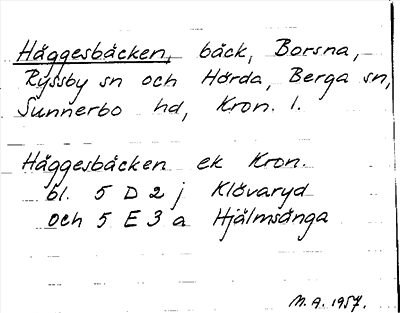 Häggesbäcken, bäck, Borsna,
Ryssby sn och Hörda, Berga sn,
Sunnerbo hd, Kron. l.
Häggesbäcken ek Kron.
bl. 5 D 2 j Klövaryd
och 5 E 3 a Hjälmsänga
M. A. 1957.